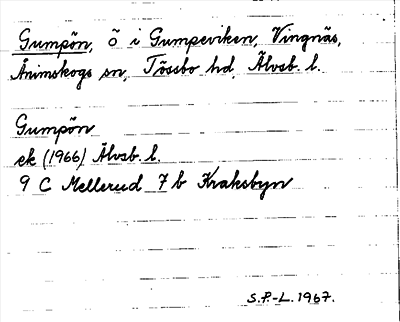 Gumpön, ö i Gumpeviken, Vingnäs,
Ånimskogs sn, Tössbo hd, Älvsb. l.
Gumpön
ek (1966) Älvsb. l.
9 C Mellerud 7 b Kraksbyn
S.F.-L. 1967.